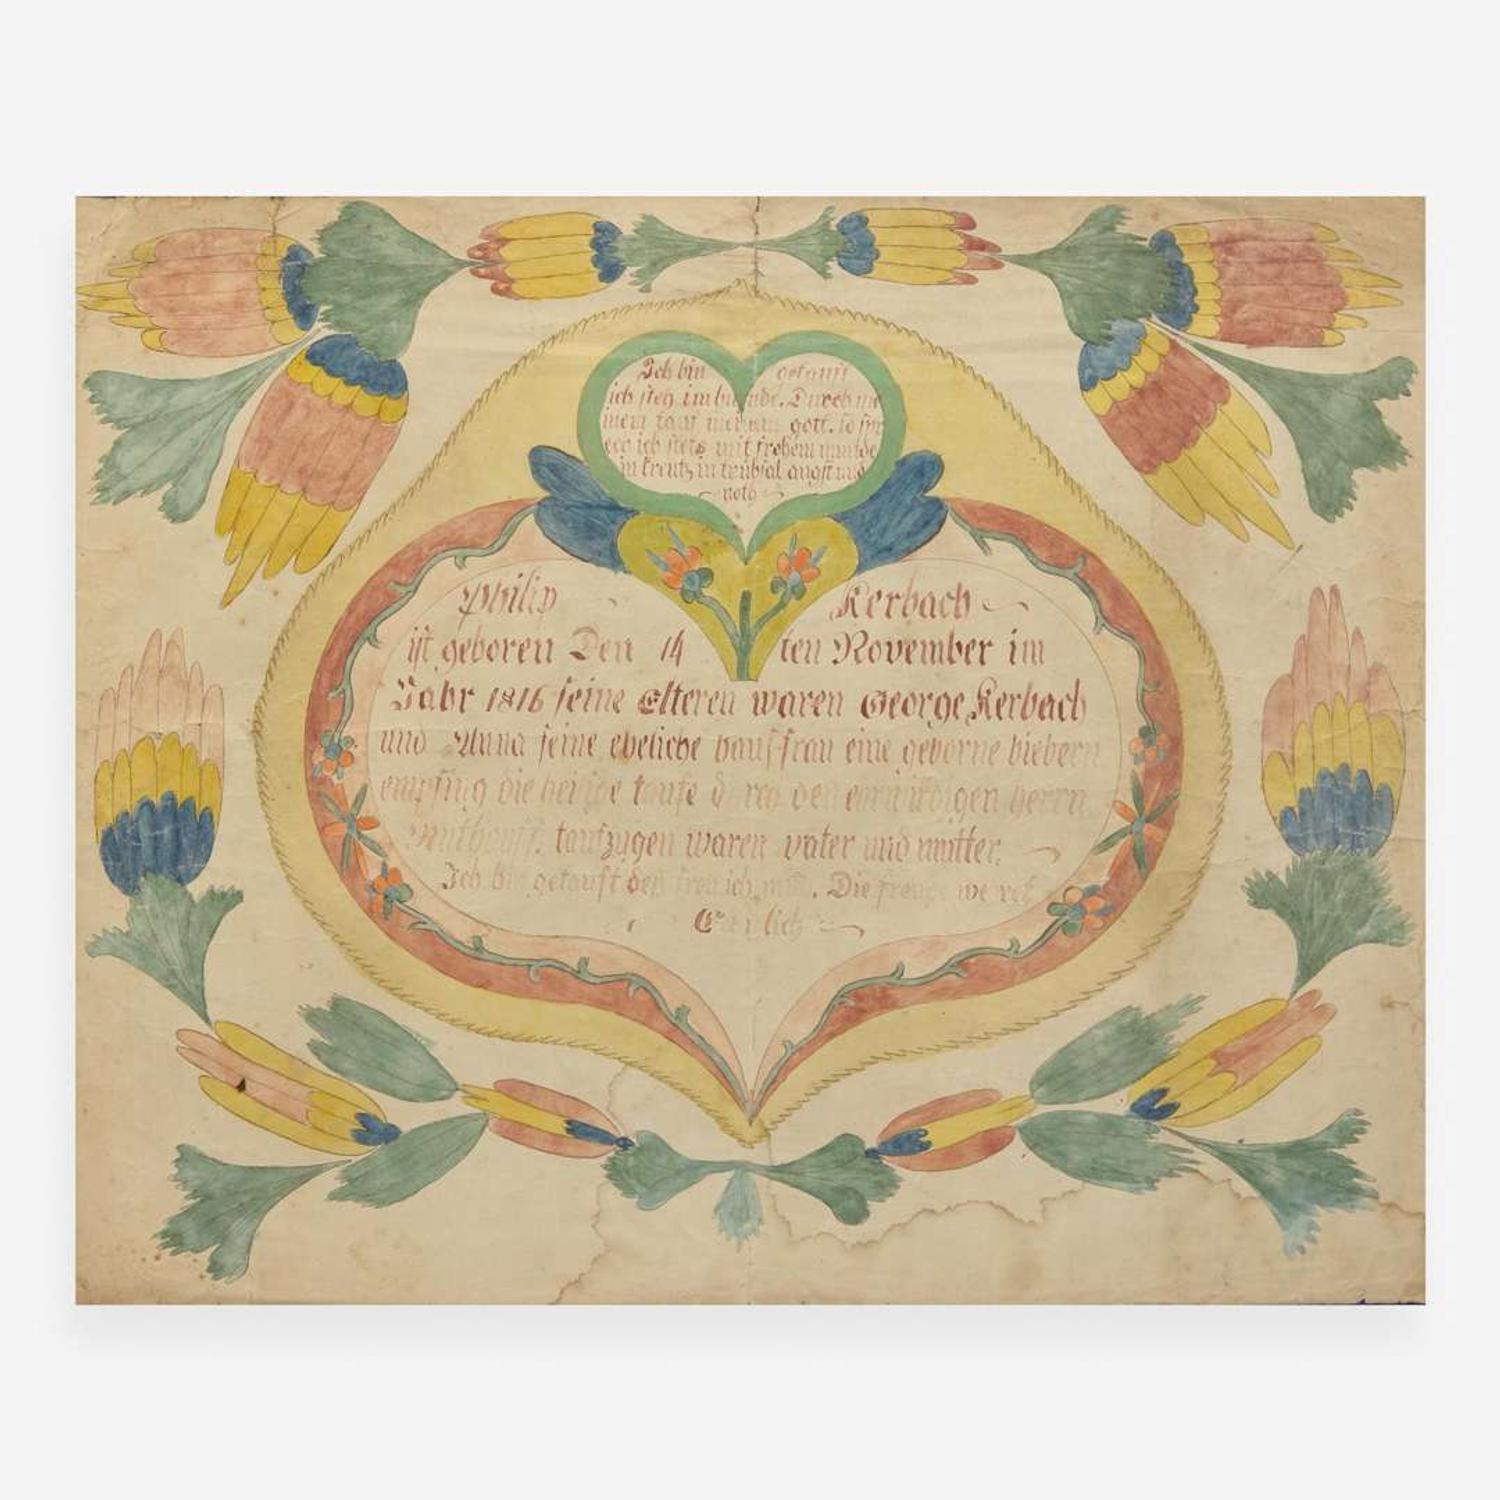 Ich bin getauft
ich steh im bunde. Durch
mein tauf meinem gott. so
ich stets mit frohem munde
in kreutz in trübsal angst und
noth
Philip Kerbach
ist geboren Den 14 ten November im
Jahr 1816 seine Elteren waren George Kerbach
und Anna seine eheliche hausfrau eine geborne biebern
empfing die heilige taufe durch den herrn
taufzugen waren vater und mutter.
Ich bin getauft deß freu ich mich. Die freude